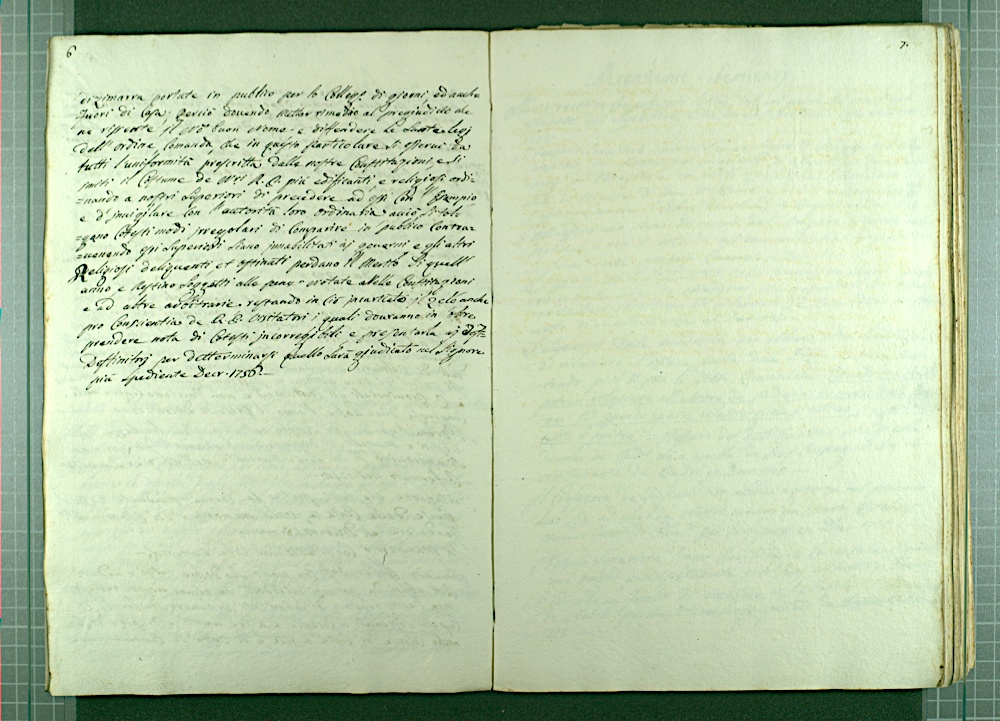 6
7.
di zimarra portate in publico per lo Colleg.o di giorni, ed anche
fuori di Casa, perciò dovendo metter rimedio al pregiudizio che
ne risente il nro buon nome, e diffendere le sante legi
dell'ordine, Comanda, che in questo particolare si osservi da
tutti l'uniformità prescritta dalle nostre Constitutioni, e si
imiti il Costume de nri R. P. più edificanti, e religiosi ordi=
=nando a nostri Superiori di precedere ad essi con l'Esempio
e d'invigilare con l'autorità loro ordinaria acciò si tol=
=gano Cotesti modi irregolari di Comparire in publico Contra=
=venendo essi Superiori siano innabilitati ai governi e gli altri
Religiosi delinquenti et ostinati perdano il Merito di quell'
anno e restino soggetti alle pene dalle Constitutioni
e ad altre arbitrarie restando in ciò incaricato il Zelo anche
pro Conscientia de R. P. Visitatori i quali dovranno in oltre
prendere nota di Cotesti incorregibili e presentarla ai
Deffinitorj per determinarsi quello sarà giudicato nel Signore
più spediente Decr. 1756.